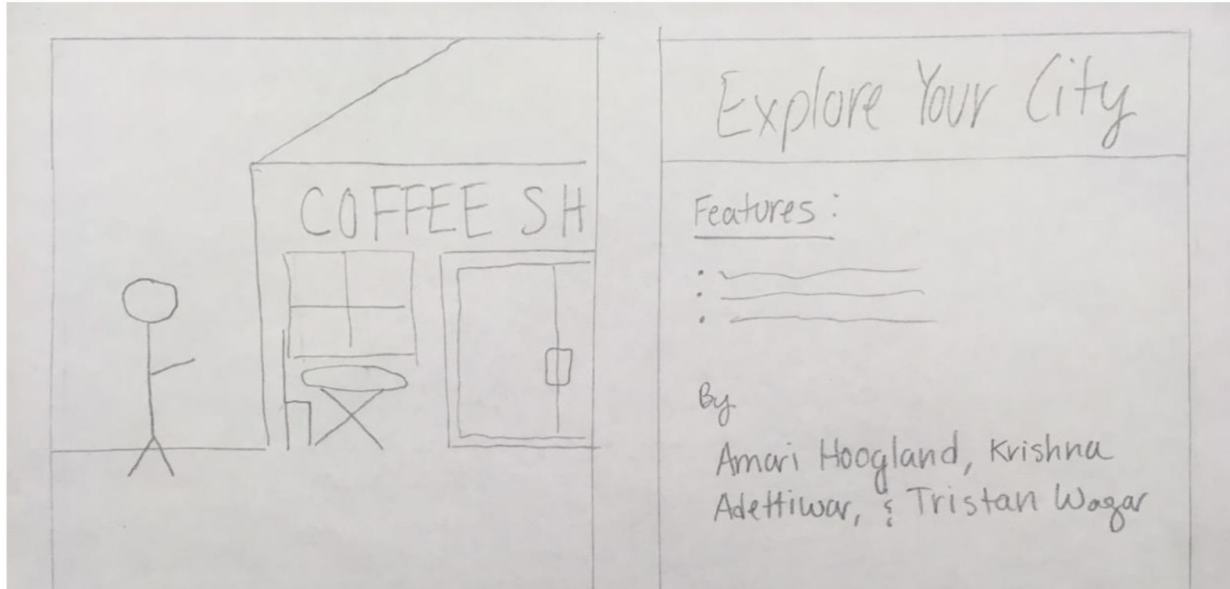 COFFEE SH
Explore Your City
Features:
By
Amari Hoogland, Krishna
Adettiwar, & Tristan Wagar